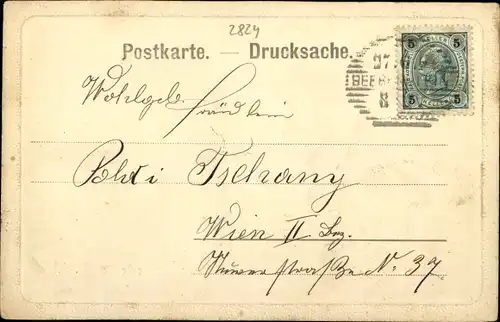 2824
Postkarte. — Drucksache.
5 5
5 5
Wohlgeb. Fräulein
Poldi Tschany
Wien II Bez.
No. 37